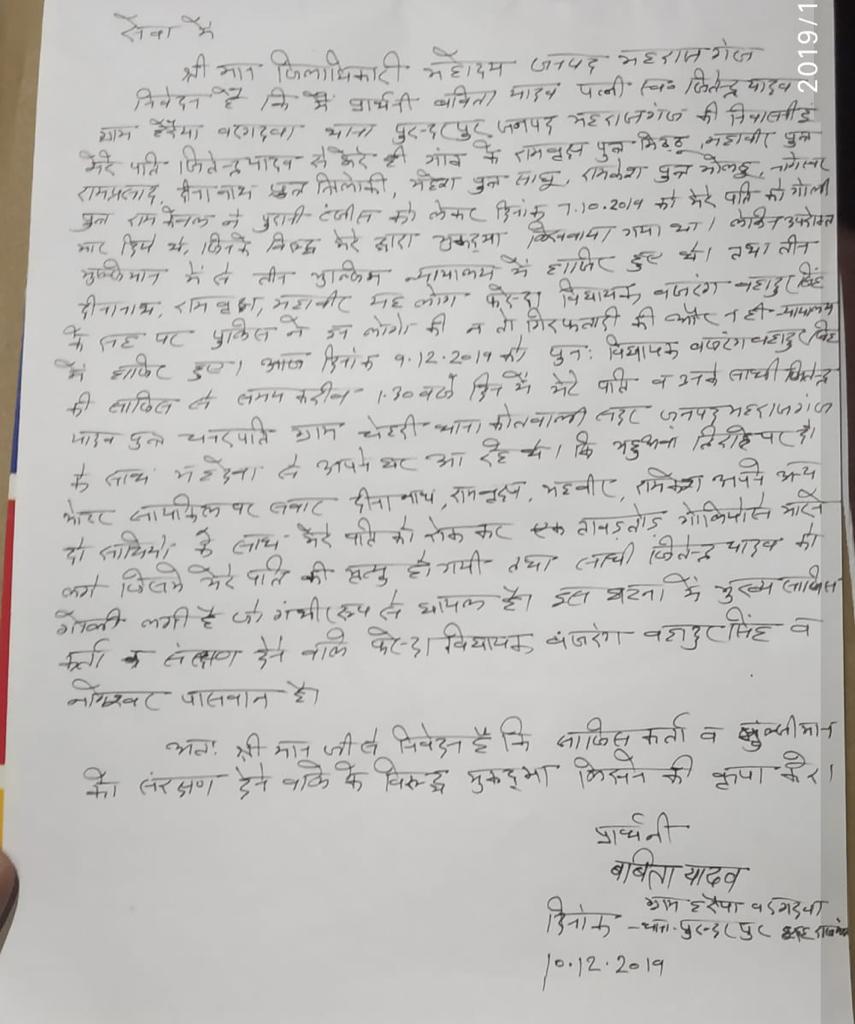 सेवा में
श्री मान जिलाधिकारी महोदय जनपद महराजगंज
निवेदन है कि मैं प्रार्थनी बबिता यादव पत्नी स्व० जितेन्द्र यादव
ग्राम हरैया बरगदवा थाना पुरन्दरपुर जनपद महराजगंज की निवासी हूं
मेरे पति जितेन्द्र यादव से मेरे ही गांव के रामबृक्ष पुत्र महावीर पुत्र
रामप्रसाद, दीनानाथ पुत्र त्रिलोकी, महेश पुत्र साधु, रामकेश पुत्र नागेश्वर
पुत्र ने पुरानी रंजीस को लेकर दिनांक 7.10.2019 को मेरे पति को गोली
मार दिये थे, जिनके विरुद्ध मेरे द्वारा मुकद्मा लिखवाया गया था। लेकिन उपरोक्त
मुल्जिमान में से तीन मुल्जिम न्यायालय में हाजिर हुए थे। तथा तीन
दीनानाथ, रामबृक्ष, महावीर यह लोग फरेन्दा विधायक बजरंग बहादुर सिंह
के सह पर पुलिस ने इन लोगो की न तो गिरफतारी की और न ही न्यायालय
में हाजिर हुए। आज दिनांक 9.12.2019 को पुनः विधायक बजरंग बहादुर सिंह
की साजिस से समय करीब 1.30 बजे दिन में मेरे पति व उनके साथी जितेन्द्र
यादव पुत्र ग्राम चेहरी थाना कोतवाली सदर जनपद महराजगंज
के साथ महदेवा से अपने घर आ रहे थे। कि महुअवा तिराहे पर दो
मोटर सायकिल पर सवार दीनानाथ, रामबृक्ष, महवीर, रामकेश अपने अन्य
दो साथियो के साथ मेरे पति को रोक कर ताबड़तोड़ गोलियो से मारने
लगे जिससे मेरे पति की मृत्यु हो गयी तथा साथी जितेन्द्र यादव को
गोली लगी है जो गंभीर रूप से घायल है। इस घटना में मुख्य साजिस
कर्ता व संरक्षण देने वाले फरेन्दा विधायक बजरंग बहादुर सिंह व
नागेश्वर पासवान है।
अतः श्री मान जी से निवेदन है कि साजिस कर्ता व मुल्जीमान
को संरक्षण देने वाले के विरुद्ध मुकद्मा लिखने की कृपा करे।
प्रार्थनी
बबिता यादव
ग्राम हरैया बरगदवा
दिनांक - थाना-पुरन्दरपुर महराजगंज
10.12.2019
2019/1